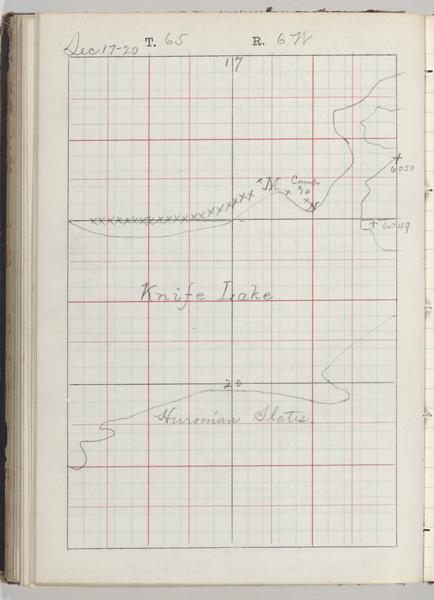 Sec 17-20 T. 65 R. 6 W
17
6050
Camp
M
90
N
6049
Knife Lake
20
Huronian Slates.